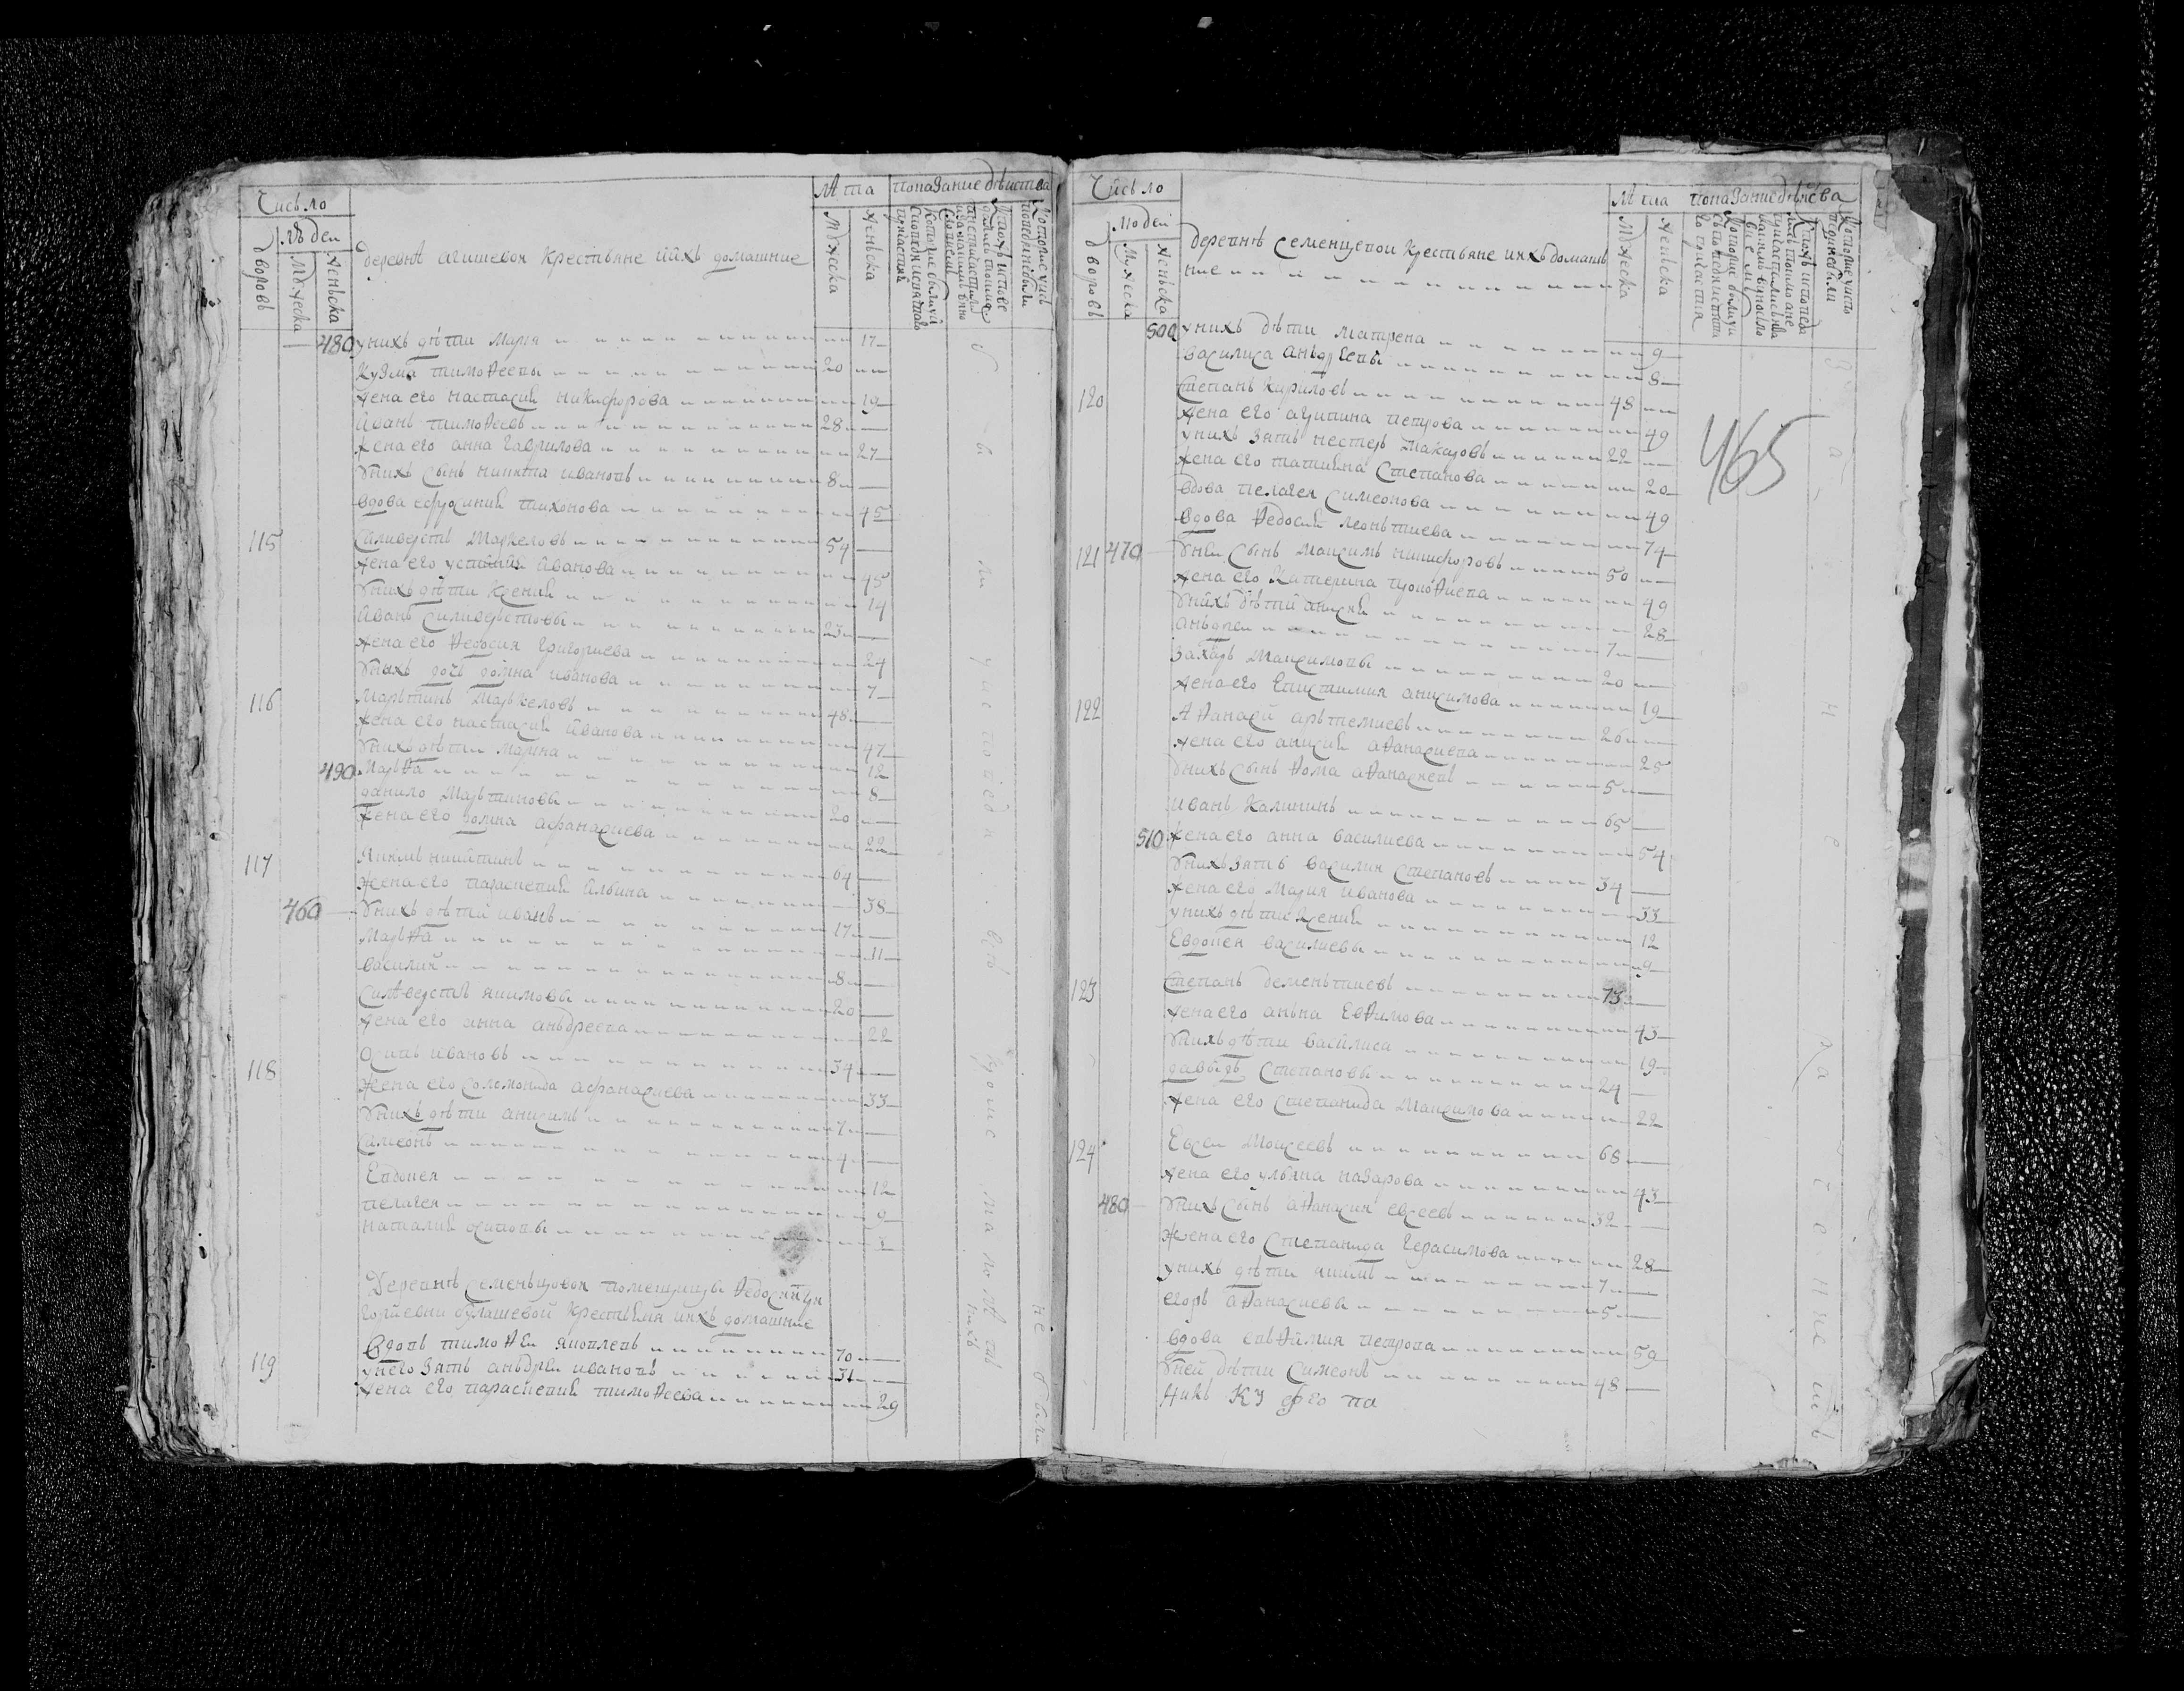 Число
Лѣта
показание дѣиства
Людеи
дворовъ
Мужеска
Женьска
деревнѣ агишевои Крестьяне ихъ домашние
Мужеска
Женьска
480 у нихъ дѣти Марья 17
Кузма тимоѳеевы 20
Жена его настасия никифорова 19
Иванъ тимоѳеевъ 28
Жена его анна Гаврилова 27
У нихъ сынъ никита ивановъ 8
вдова ефросиния тихонова 45
115 Силиверстъ Маркеловъ 54
Жена его устиния Иванова 45
У нихъ дѣти Ксения 14
Иванъ силиверстовы 23
Жена его Ѳедосия Григориева 24
У нихъ дочь домна иванова 7
116 Мартинъ Маркеловъ 48
Жена его настасия Иванова 47
У нихъ дѣти Марина 12
490 Марѳа 8
данило Мартиновы 20
Жена его домна афанасиева 22
117 Якимъ никитинъ 64
Жена его параскевия Ильина 38
460 У нихъ дѣти иванъ 17
Марѳа 11
василии 8
Силверстъ якимовы 20
Жена его анна андреева 22
118 Осипъ ивановъ 34
Жена его соломонида афанасиева 33
У нихъ дѣти анисимъ 7
Симеонъ 4
Евдокея 12
пелагея 9
наталия осиповы
Деревнѣ Семенцовои помещицы Ѳедосии
булашевой Крестьяня ихъ домашние
вдовъ тимоѳеи яковлевъ 70
119 у него зять андреи ивановъ 31
Жена его параскевия тимоѳеева 29
не были
Число
Лѣта
показание дѣиства
Людеи
дворовъ
Мужеска
Женьска
деревнѣ семенцевои Крестьяне ихъ домашние
Мужеска
Женьска
465
500 у нихъ дѣти матрена 9
василиса андреевы 8
120 Степанъ Кириловъ 48
Жена его петрова 49
у нихъ зять нестеръ Макаровъ 22
Жена его татияна Степанова 20
вдова пелагея Симеонова 49
вдова Ѳедосия леонтиева 74
121 470 У неи сынъ Максимъ никифоровъ 50
Жена его Катерина прокоѳиева 49
У нихъ дѣти 28
андреи 7
Захаръ Максимовы 20
Жена его Епистимия анисимова 19
122 Аѳанасеи артемиевъ 26
Жена его анисия аѳанасиева 25
У нихъ сынъ Ѳома аѳанасиевъ 5
иванъ Калининъ 65
510 Жена его анна василиева 54
У нихъ зять василии Степановъ 34
Жена его Мария иванова 33
у нихъ дѣти Ксения 12
Евдокея василиевы 9
123 Степанъ дементиевъ 73
Жена его анна Евѳимова 43
У нихъ дѣти василиса 19
давыдъ Степановы 24
Жена его степанида Максимова 22
124 Евсеи Моисеевъ 68
Жена его ульяна назарова 43
480 У нихъ сынъ аѳанасии евсеевъ 32
Жена его Степанида Герасимова 28
у нихъ дѣти якимъ 7
егоръ аѳанасиевы 5
вдова евѳимия петрова 59
У неи дѣти Симеонъ 48